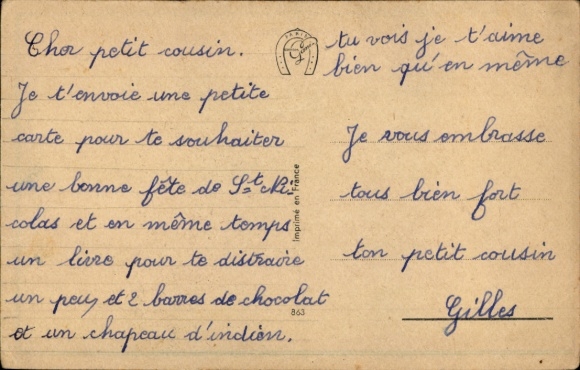 Cher petit cousin.
Je t'envoie une petite
carte pour te souhaiter
une bonne fête de St Ni-
colas et en même temps
un livre pour te distraire
un peu, et 2 barres de chocolat
et un chapeau d'indien.
PARIS
Imprimé en France
863
tu vois je t'aime
bien qu'en même
Je vous embrasse
tous bien fort
ton petit cousin
Gilles